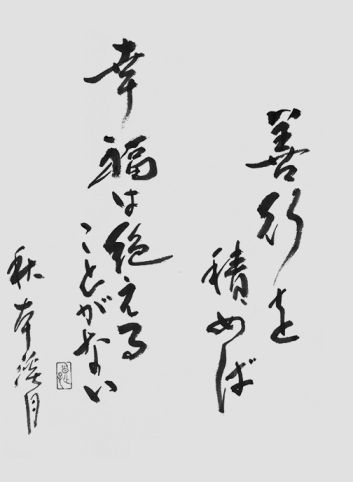 善行を
積めば
幸福は絶える
ことがない
秋本溪月